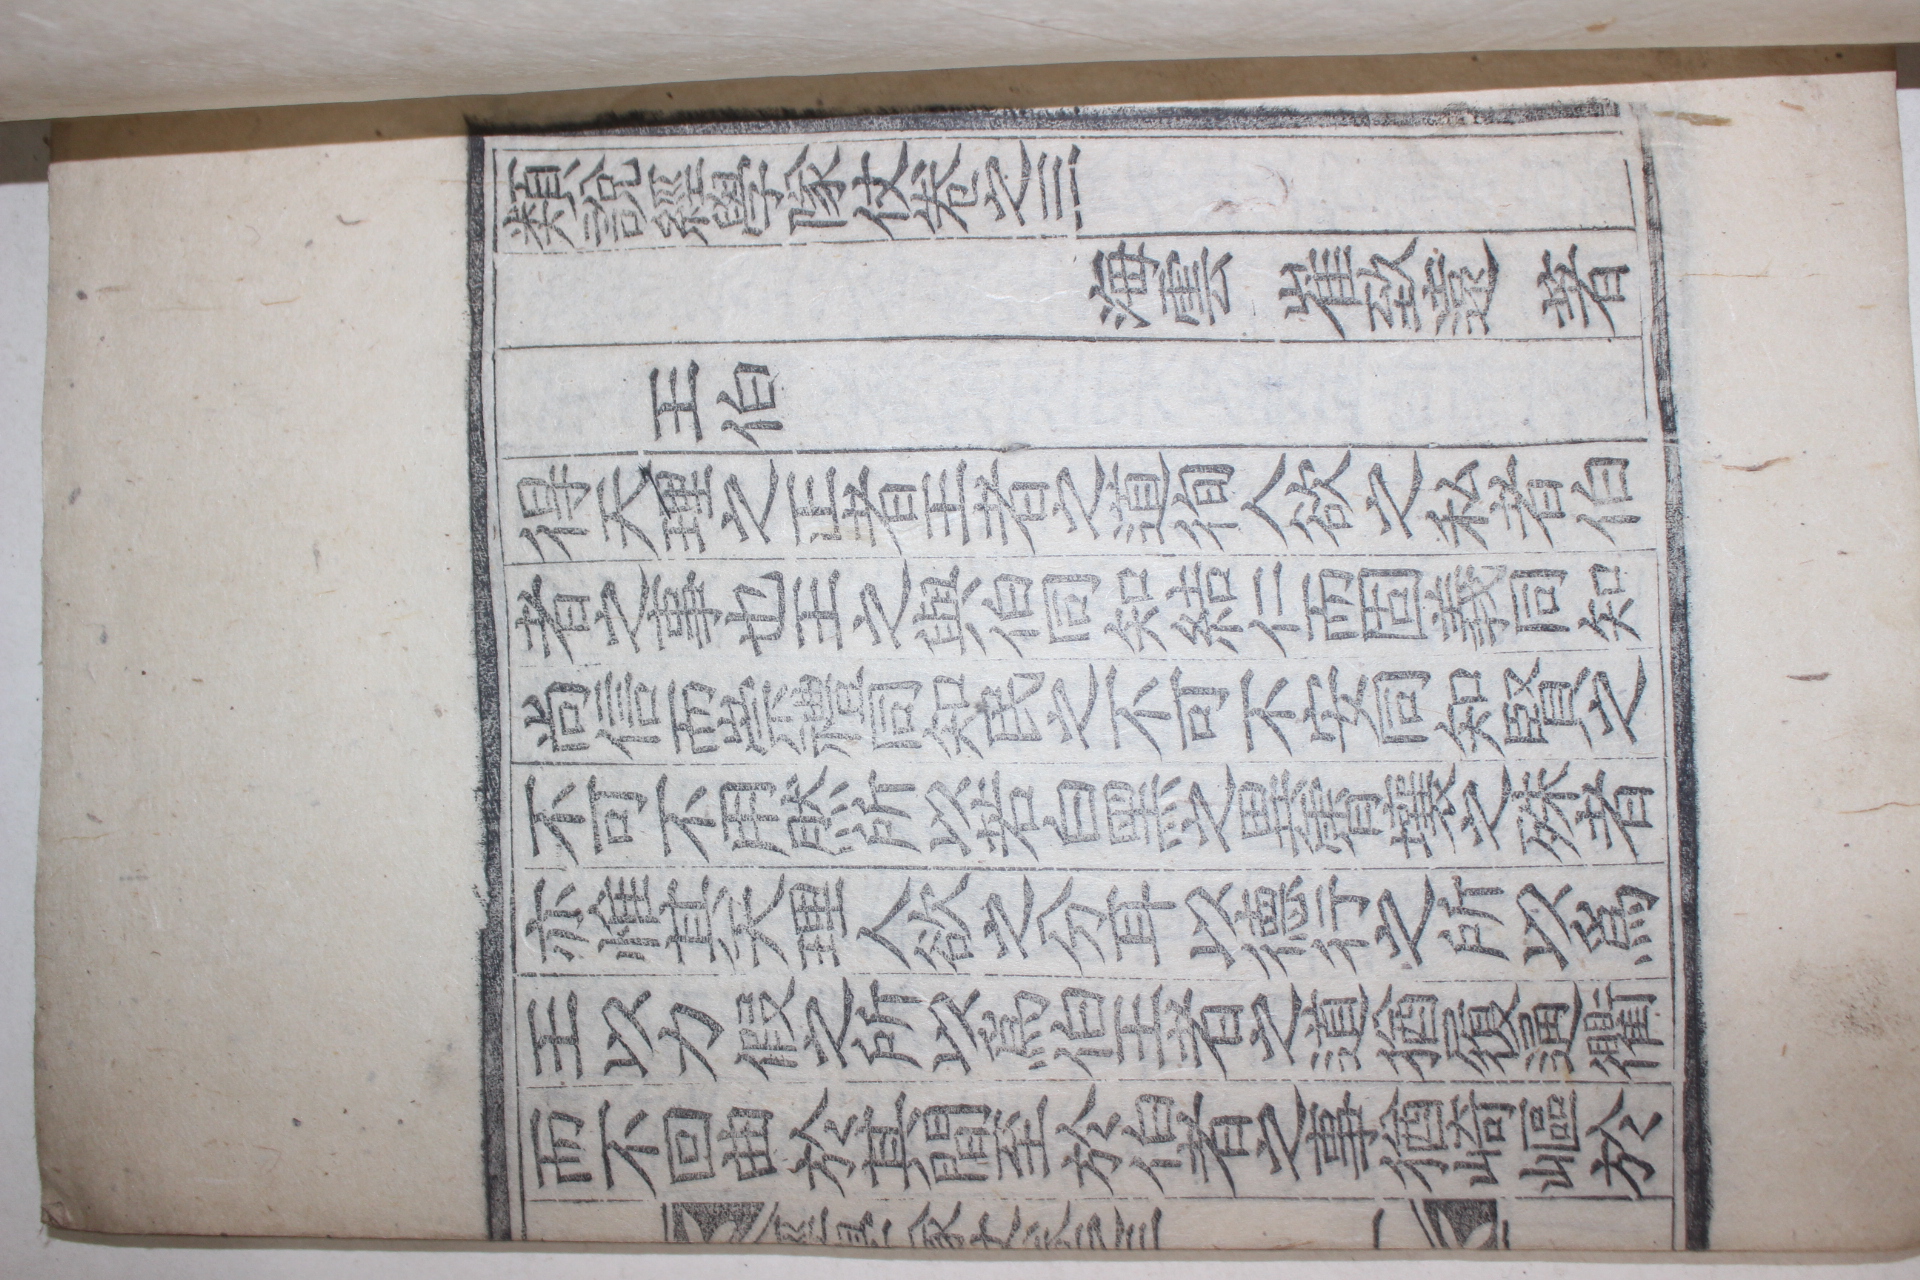 類說經學隊仗卷之三
海雲 崔致遠 著
王伯
得天理之正者王者之道徇人欲之私者伯
者之事也王之與伯同知結仁而固義同知
尚信而崇禮同知民之不可不安同知賢之
不可不用然所以若白黑之異霄壤之殊者
亦惟其天理人欲之分耳以德行之所以爲
王以力假之所以爲伯王者之道猶履通衢
而不回曲於其間至於伯者之事猶崎嶇於
經學隊仗卷之三 一